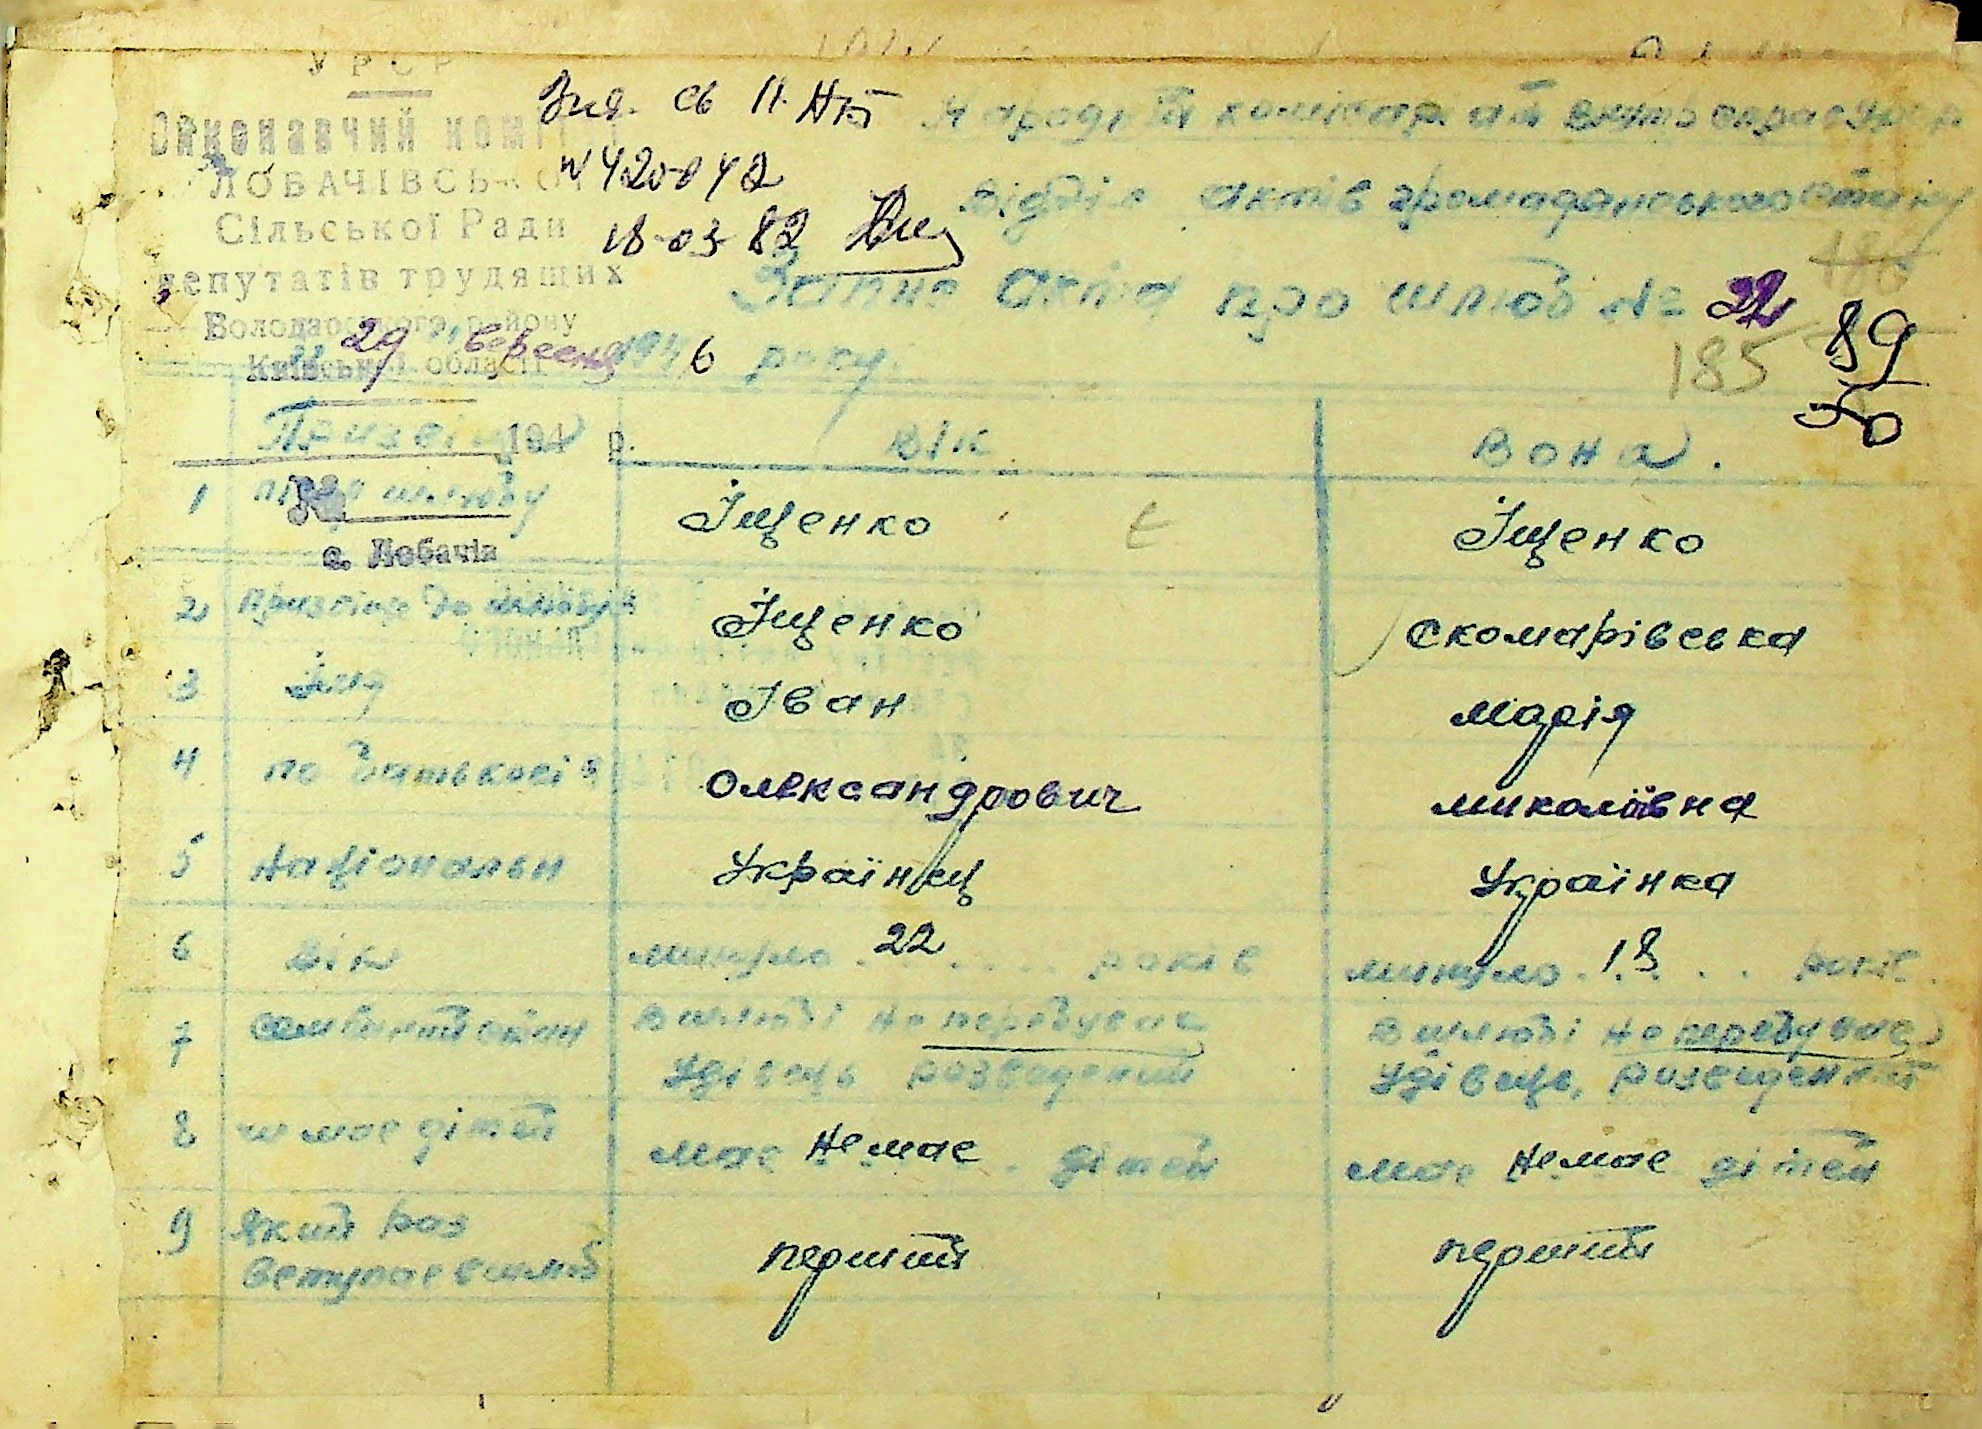 УРСР
Виконавчий коміт
ЛОБАЧІВСЬКОЇ
Сільської Ради
депутатів трудящих
Володарського району
Київської області
194 р.
с. Лобачів
Вид. св II НБ
№ 420042
18-03-82
Народній комісаріат внутр справ УРСР
Відділ актів громадянського стану
Запис Акта про шлюб № 22
186
185
89
50
"29" вересня 1946 року.
Прізвище Він Вона.
1 після шлюбу Іщенко Іщенко
2 Прізвище до шлюбу Іщенко Скомарівська
3 Імя Іван Марія
4 по батькові Олександрович Миколаївна
5 Національн Українец Українка
6 Вік минуло 22 років минуло 18 років.
7 Семейний стан В шлюбі не перебуває В шлюбі не перебуває
Удівець розведений Удівець, розведений
8 чи має дітей має немає дітей має немає дітей
9 Який раз
вступає в шлюб перший перший